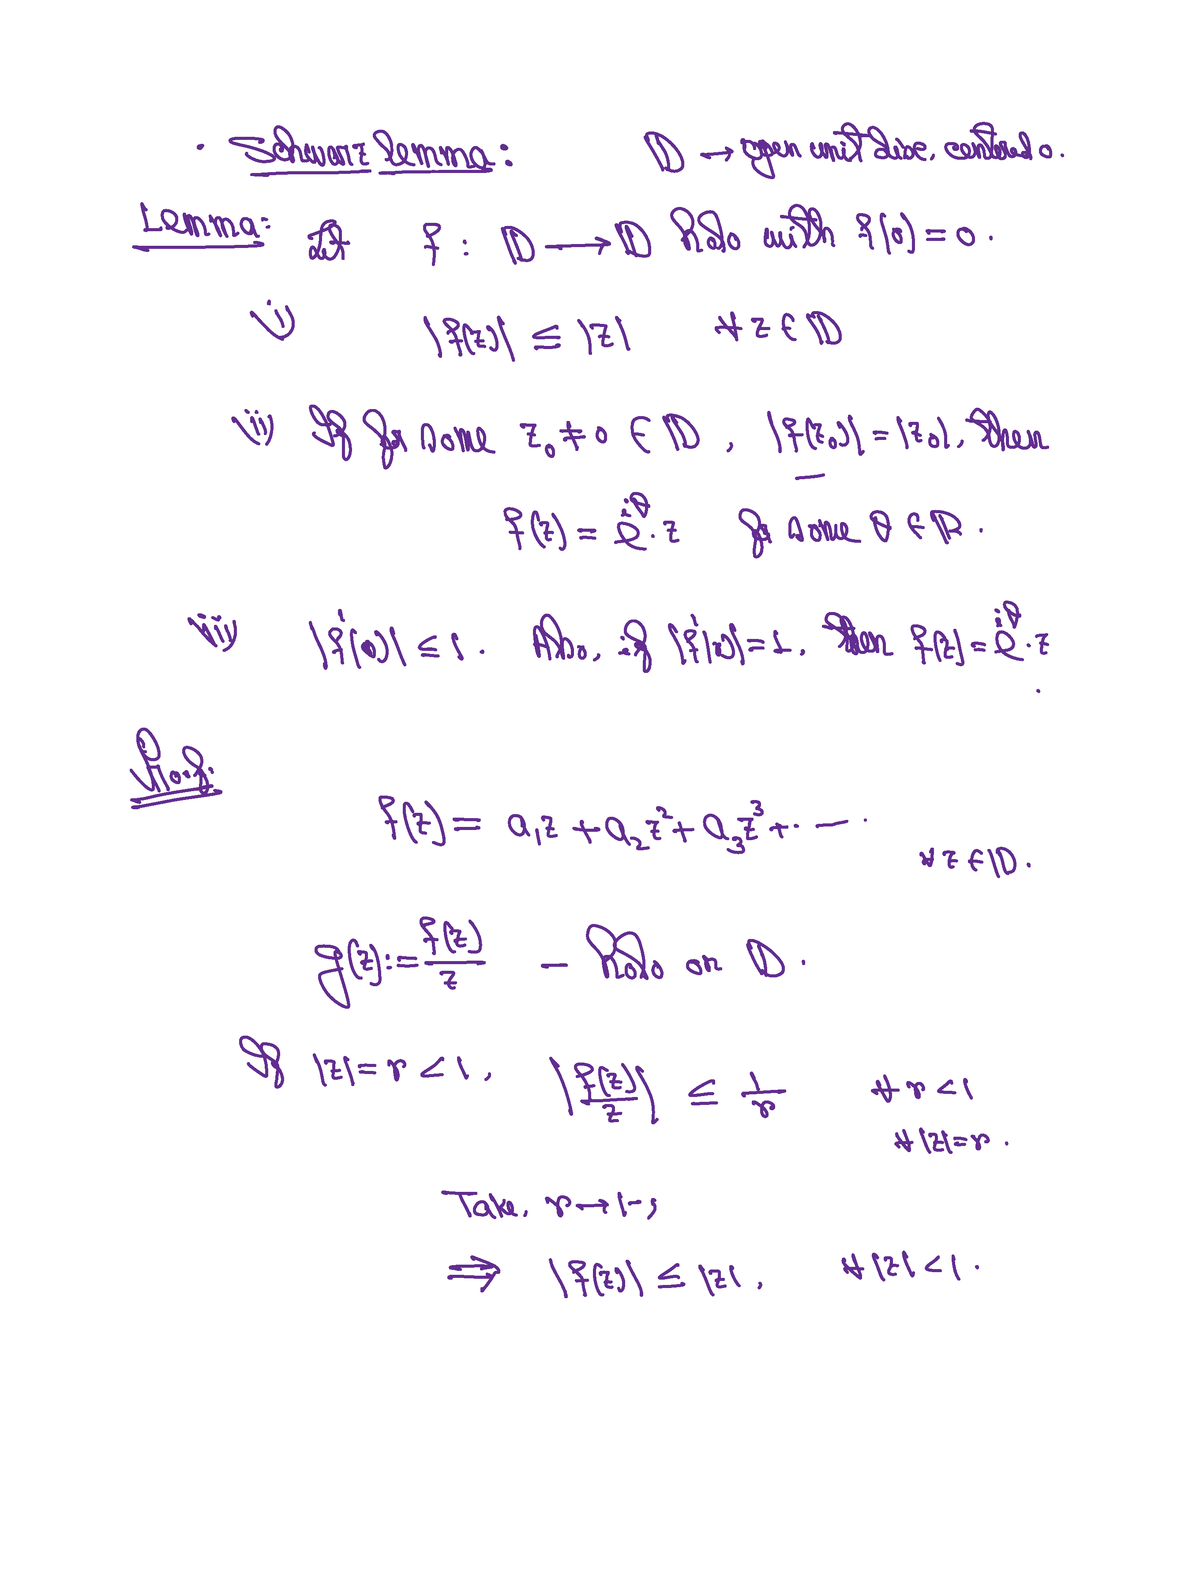 · Schwarz lemma: 𝔻 → open unit disc, centered 0.
Lemma: Let f : 𝔻 → 𝔻 holo with f(0) = 0.
(i) |f(z)| ≤ |z| ∀ z ∈ 𝔻
(ii) If for some z₀ ≠ 0 ∈ 𝔻, |f(z₀)| = |z₀|, then
f(z) = e^{iθ}·z for some θ ∈ ℝ.
(iii) |f'(0)| ≤ 1. Also, if |f'(0)| = 1, then f(z) = e^{iθ}·z.
Proof:
f(z) = a₁z + a₂z² + a₃z³ + ·—·
∀ z ∈ 𝔻.
g(z) := f(z)/z – holo on 𝔻.
If |z| = r < 1, |f(z)/z| ≤ 1/r ∀ r < 1
∀ |z| = r.
Take, r → 1–;
⇒ |f(z)| ≤ |z|, ∀ |z| < 1.